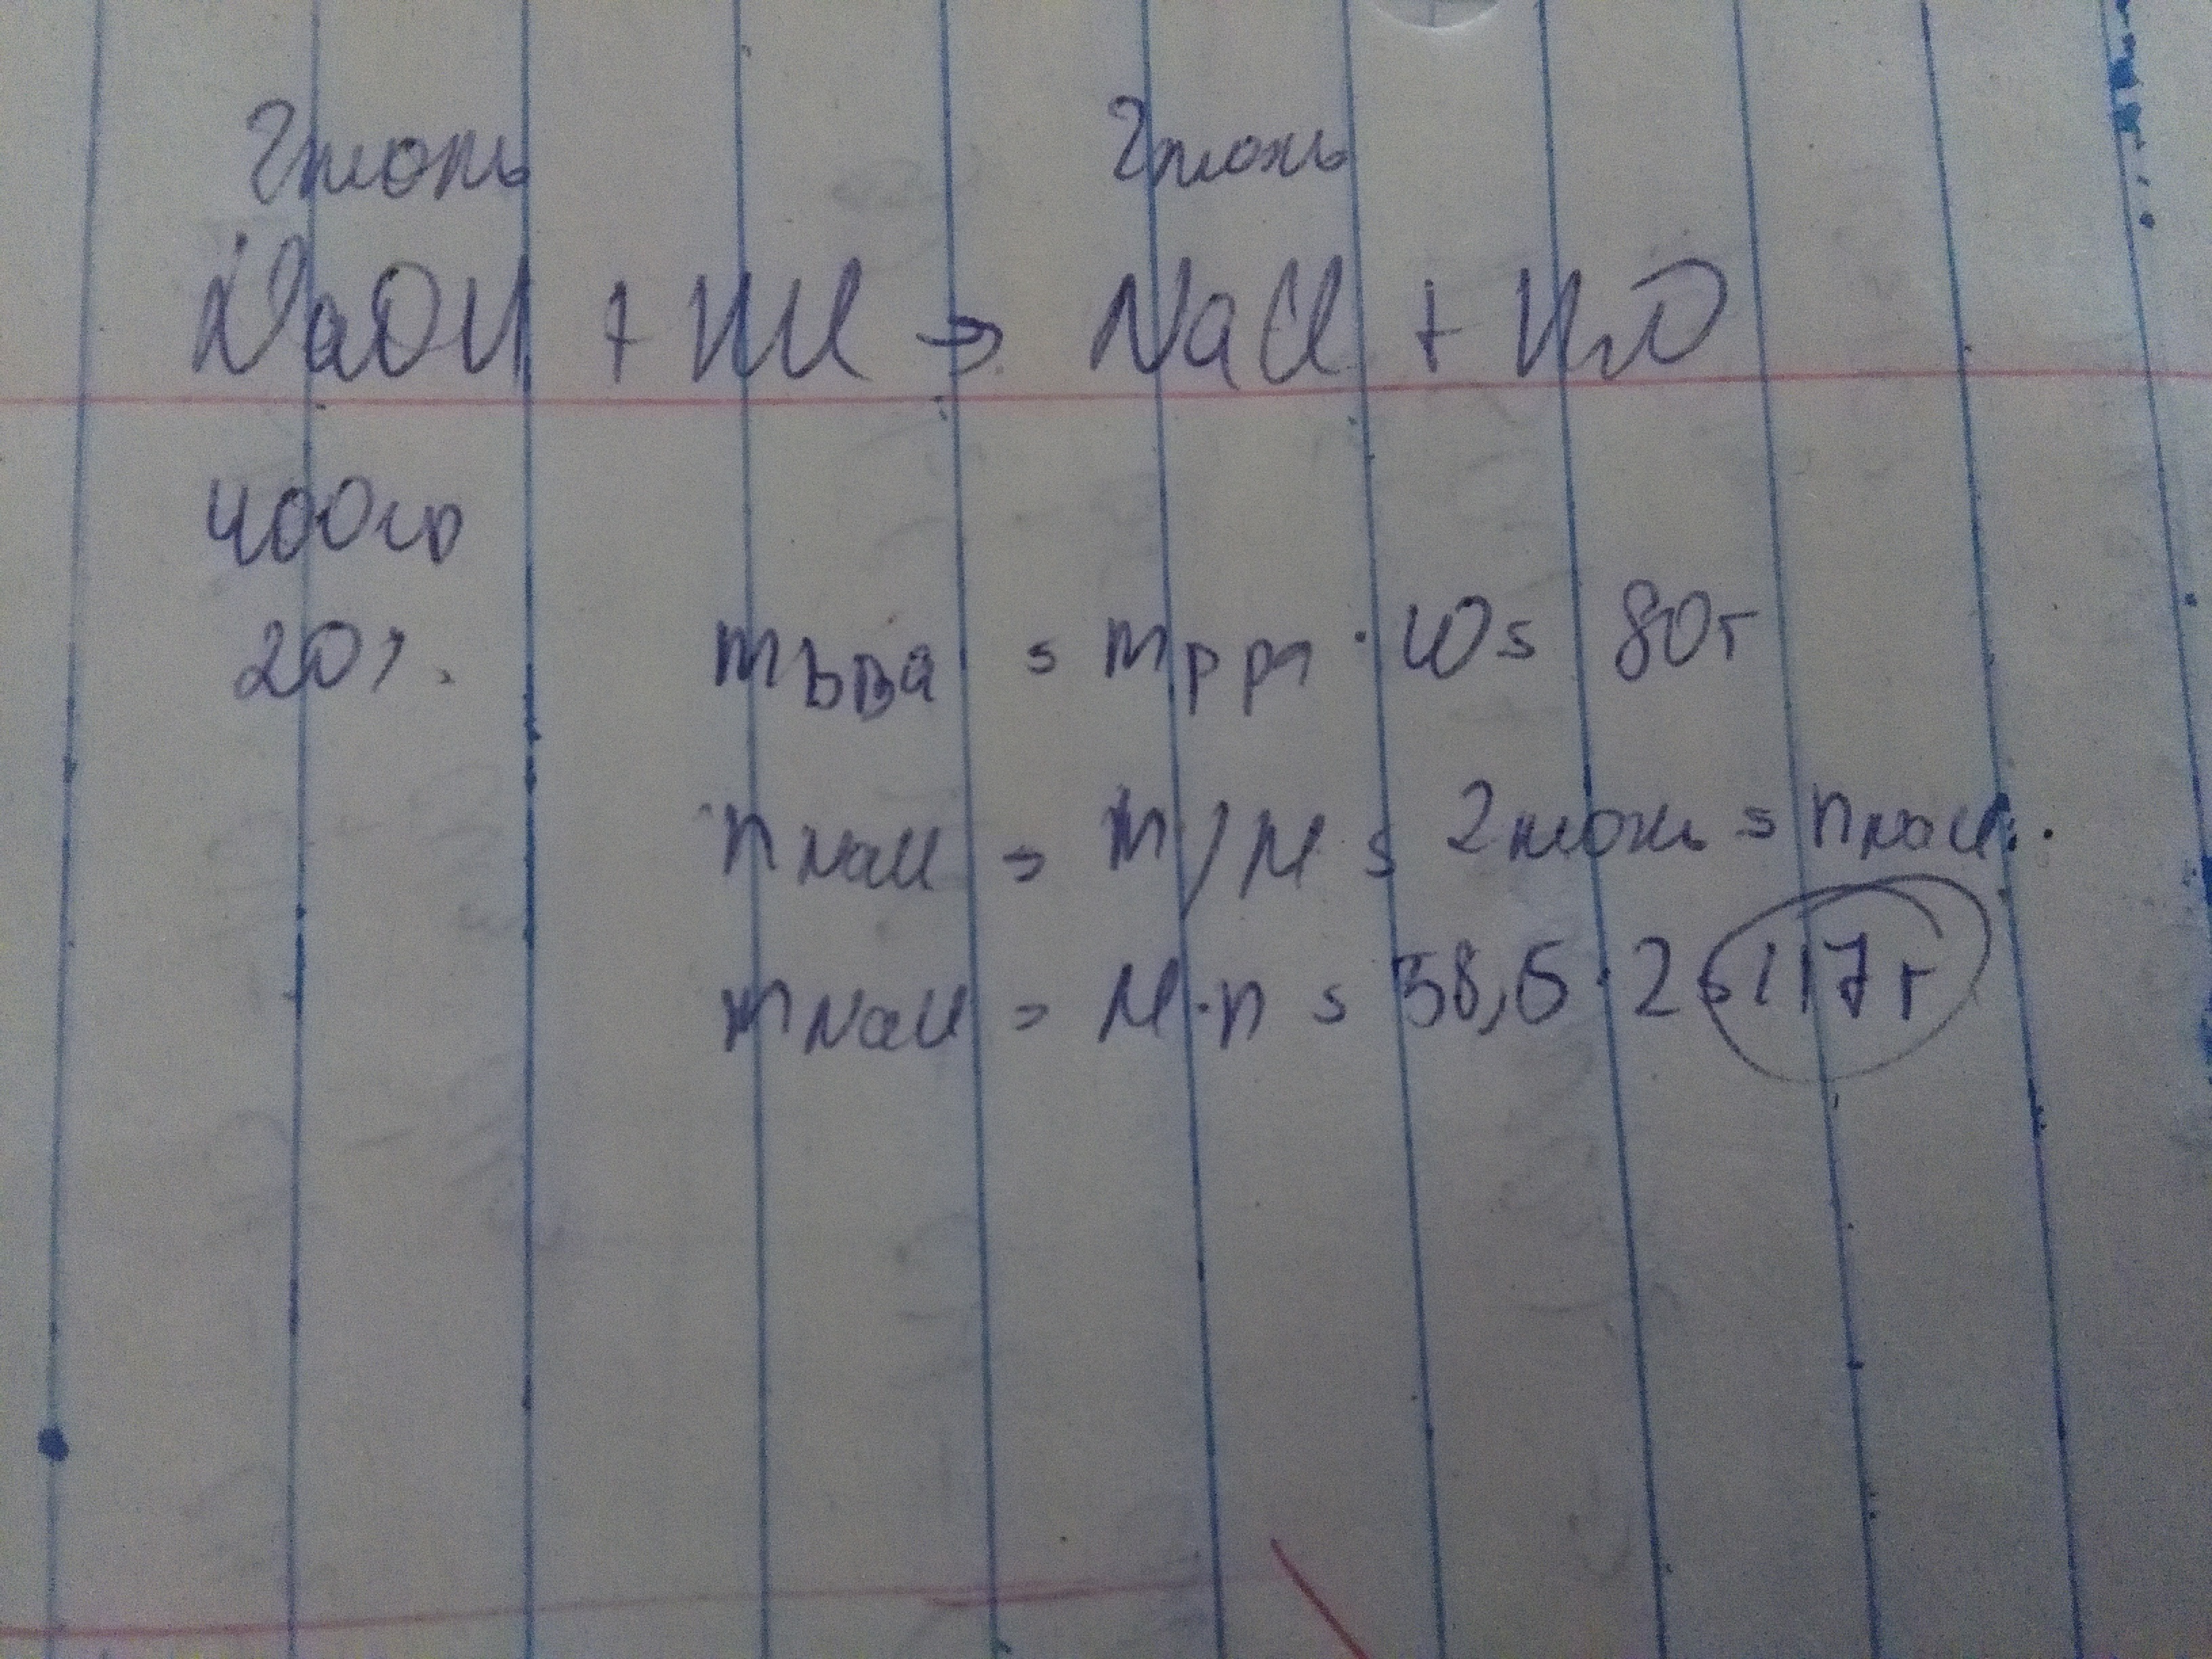 2моль 2моль
NaOH + HCl → NaCl + H2O
400гр
20%. mвва = mррa · ω = 80г
nNaCl = m/M = 2моль = nNaCl.
mNaCl = M·n = 58,5·2 = 117г